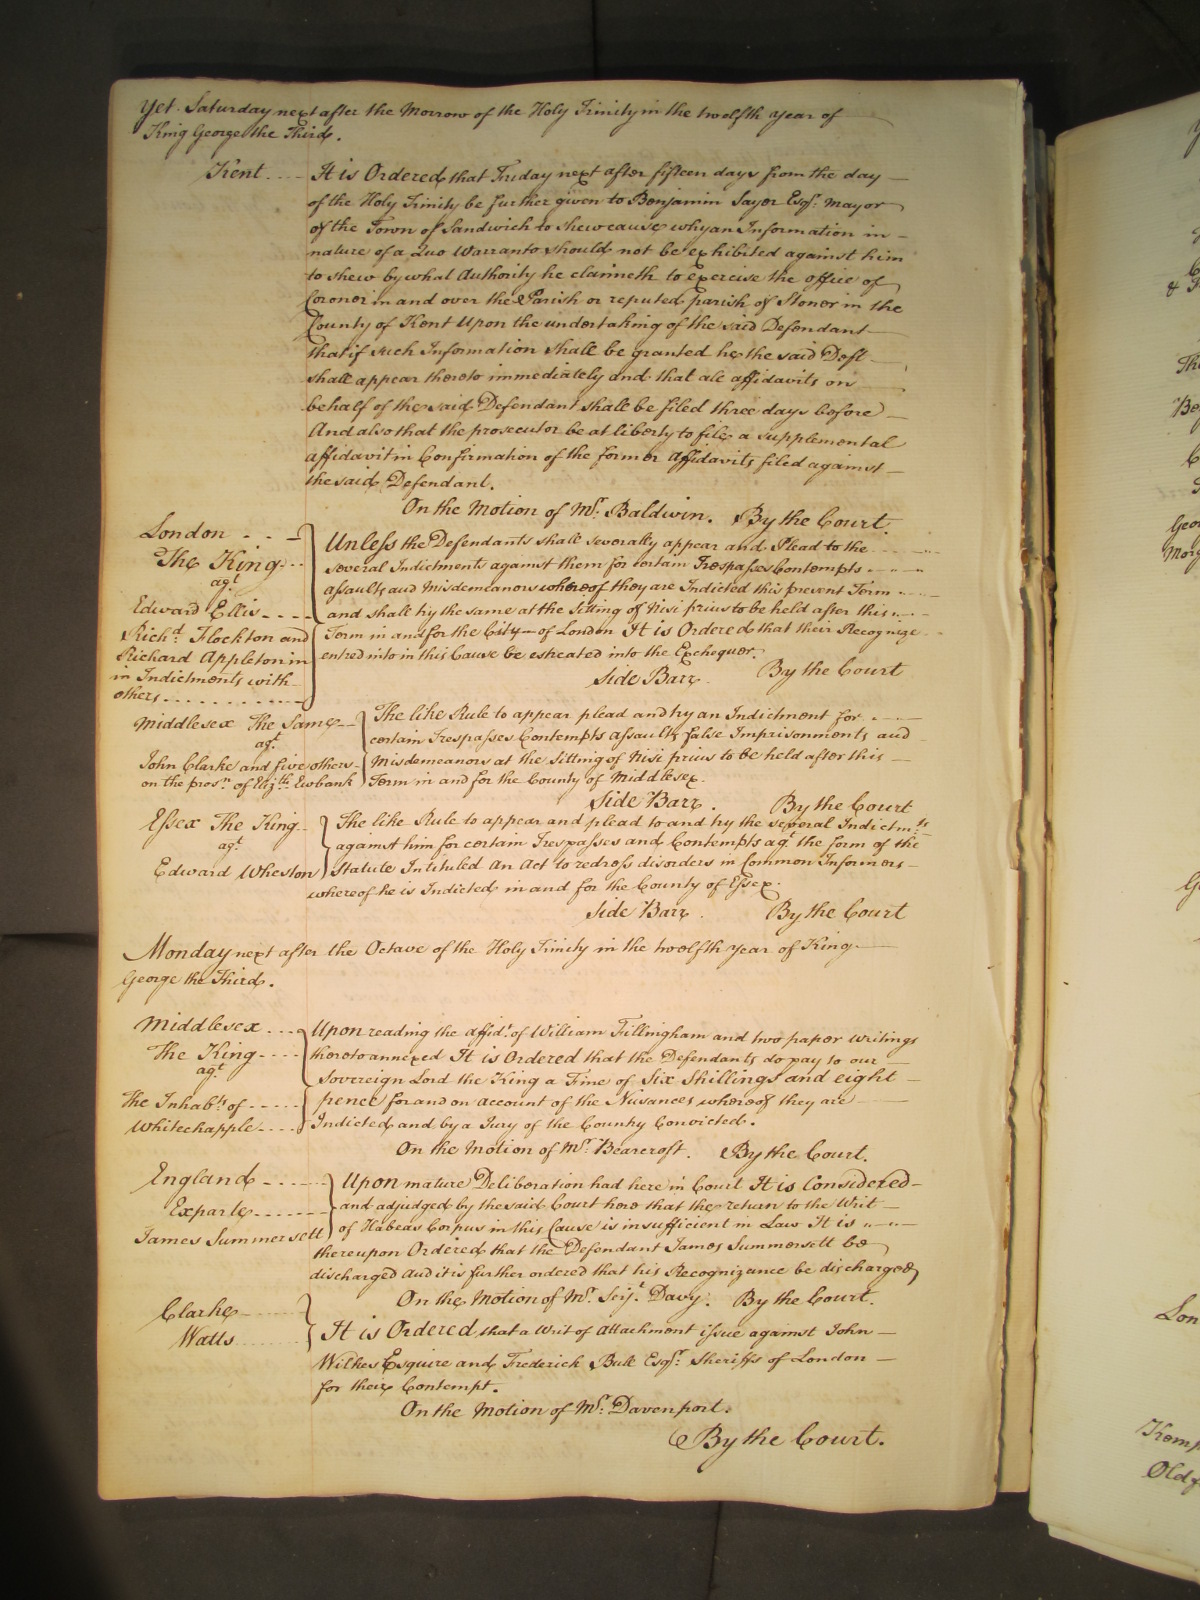 Yet Saturday next after the Morrow of the Holy Trinity in the twelfth year of
King George the Third.
Kent .... It is Ordered that Friday next after fifteen days from the day
of the Holy Trinity be further given to Benjamin Sayer Esqr. Mayor
of the Town of Sandwich to shew cause why an Information in
nature of a Quo Warranto should not be exhibited against him
to shew by what Authority he claimeth to Exercise the office of
Coroner in and over the Parish or reputed parish of Stonor in the
County of Kent Upon the undertaking of the said Defendant
that if such Information shall be granted he the said Deft
shall appear thereto immediately and that all affidavits on
behalf of the said Defendant shall be filed three days before
And also that the prosecutor be at liberty to file a supplemental
affidavit in Confirmation of the former Affidavits filed against
the said Defendant.
On the Motion of Mr. Baldwin. By the Court.
London - - -
The King
agt
Edward Ellis
Richd. Flockton and
Richard Appleton in
in Indictments with
others
Unless the Defendants shall severally appear and Plead to the
several Indictments against them for certain Trespasses Contempts
assaults and Misdemeanors whereof they are Indicted this present Term
and shall try the same at the Sitting of Nisi prius to be held after this
Term in and for the City of London It is Ordered that their Recognize
entred into in this Cause be estreated into the Exchequer.
Side Barr. By the Court
Middlesex The Same
agt
John Clarke and five others
on the prosn. of Elizth. Ewbank
The like Rule to appear plead and try an Indictment for
certain Trespasses Contempts assaults false Imprisonments and
Misdemeanors at the Sitting of Nisi prius to be held after this
Term in and for the County of Middlesex.
Side Barr. By the Court
Essex The King
agt
Edward Wheston
The like Rule to appear and plead to and try the several Indictmts
against him for certain Trespasses and Contempts agt the form of the
Statute Intituled An Act to redress disorders in Common Informers
whereof he is Indicted in and for the County of Essex.
Side Barr. By the Court
Monday next after the Octave of the Holy Trinity in the twelfth year of King
George the Third.
Middlesex
The King
agt
The Inhabts of
Whitechapple
Upon reading the affidt. of William Tillingham and two paper writings
thereto annexed It is Ordered that the Defendants do pay to our
Sovereign Lord the King a Fine of Six Shillings and eight
pence for and on account of the Nusances whereof they are
Indicted and by a Jury of the County Convicted.
On the Motion of Mr. Bearcroft. By the Court.
England
Exparte
James Summersett
Upon mature Deliberation had here in Court It is Considered
and adjudged by the said Court here that the return to the Writ
of Habeas Corpus in this Cause is insufficient in Law It is
thereupon Ordered that the Defendant James Summersett be
discharged And it is further ordered that his Recognizance be discharged
On the Motion of Mr. Serjt. Davy. By the Court.
Clarke
Watts
It is Ordered that a Writ of Attachment issue against John
Wilkes Esquire and Frederick Bull Esqr. Sheriffs of London
for their Contempt.
On the Motion of Mr. Davenport.
By the Court.